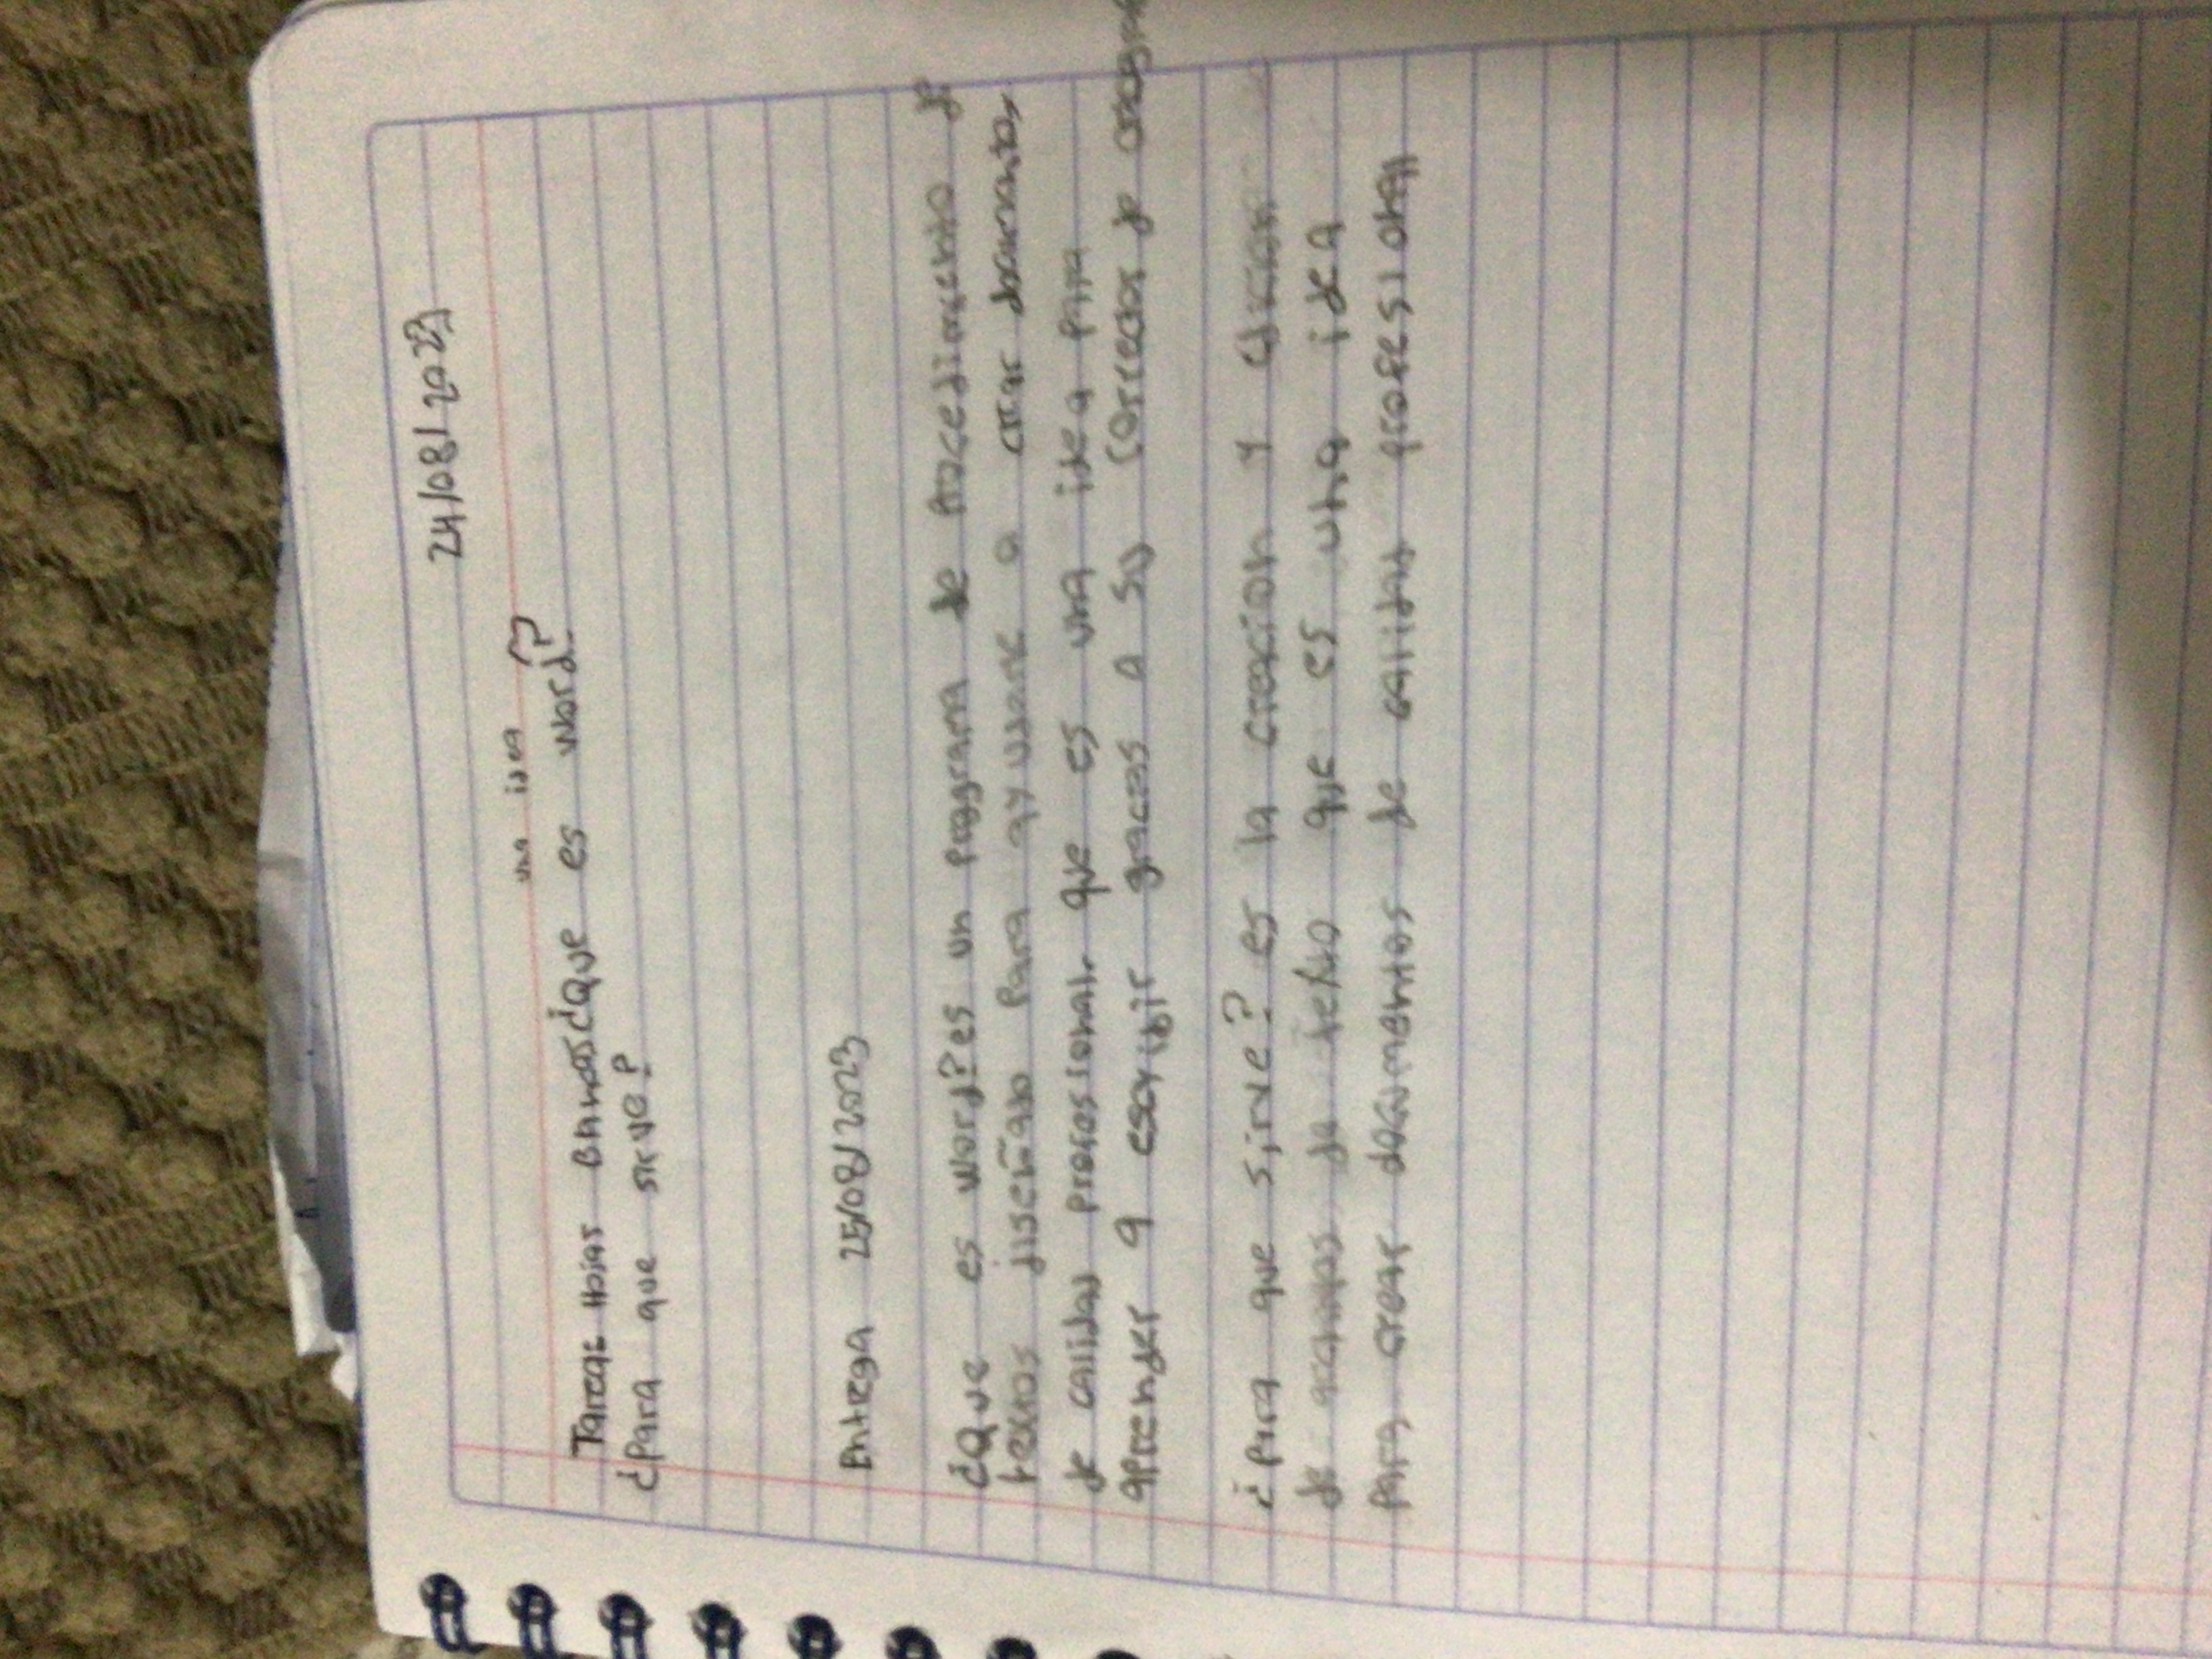 24/08/2023
una idea
Tareas ¿Que es word?
¿Para que sirve?
Entrega 25/08/2023
¿Que es word? es un programa de Procedimiento de
textos diseñado para ayudarle a crear documentos
de calidad profesional. que es una idea para
aprender a escribir gracias a su corrector de
¿Para que sirve? es la creación y
de archivos de texto que es una idea
para crear documentos de calidad profesional